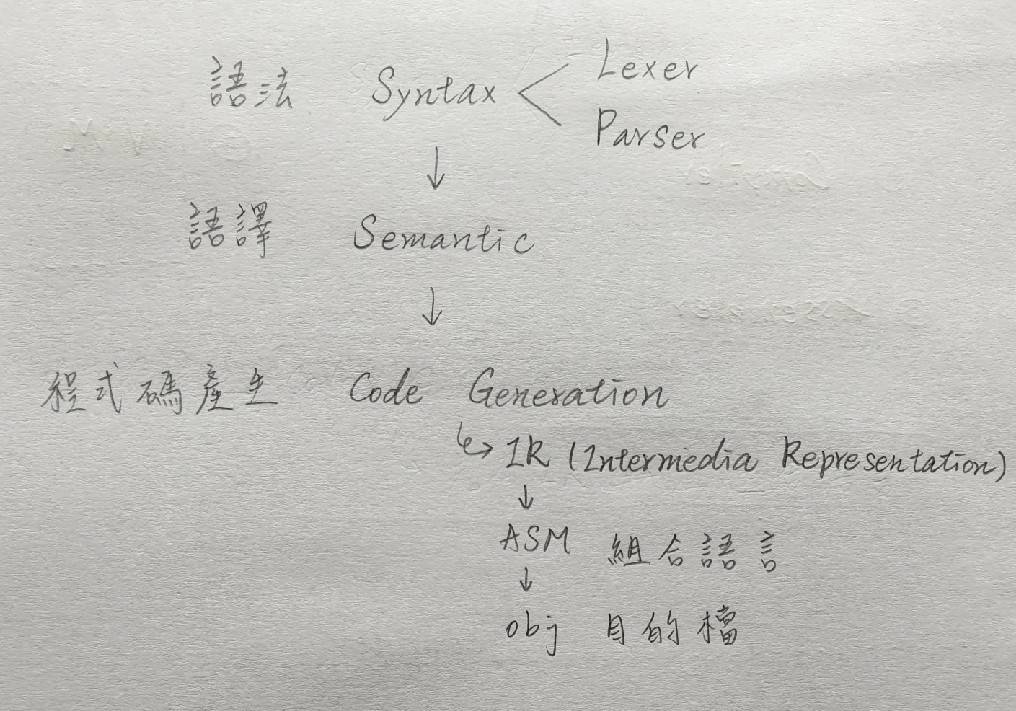 語法 Syntax Lexer
Parser
語譯 Semantic
程式碼產生 Code Generation
IR (Intermedia Representation)
ASM 組合語言
obj 目的檔